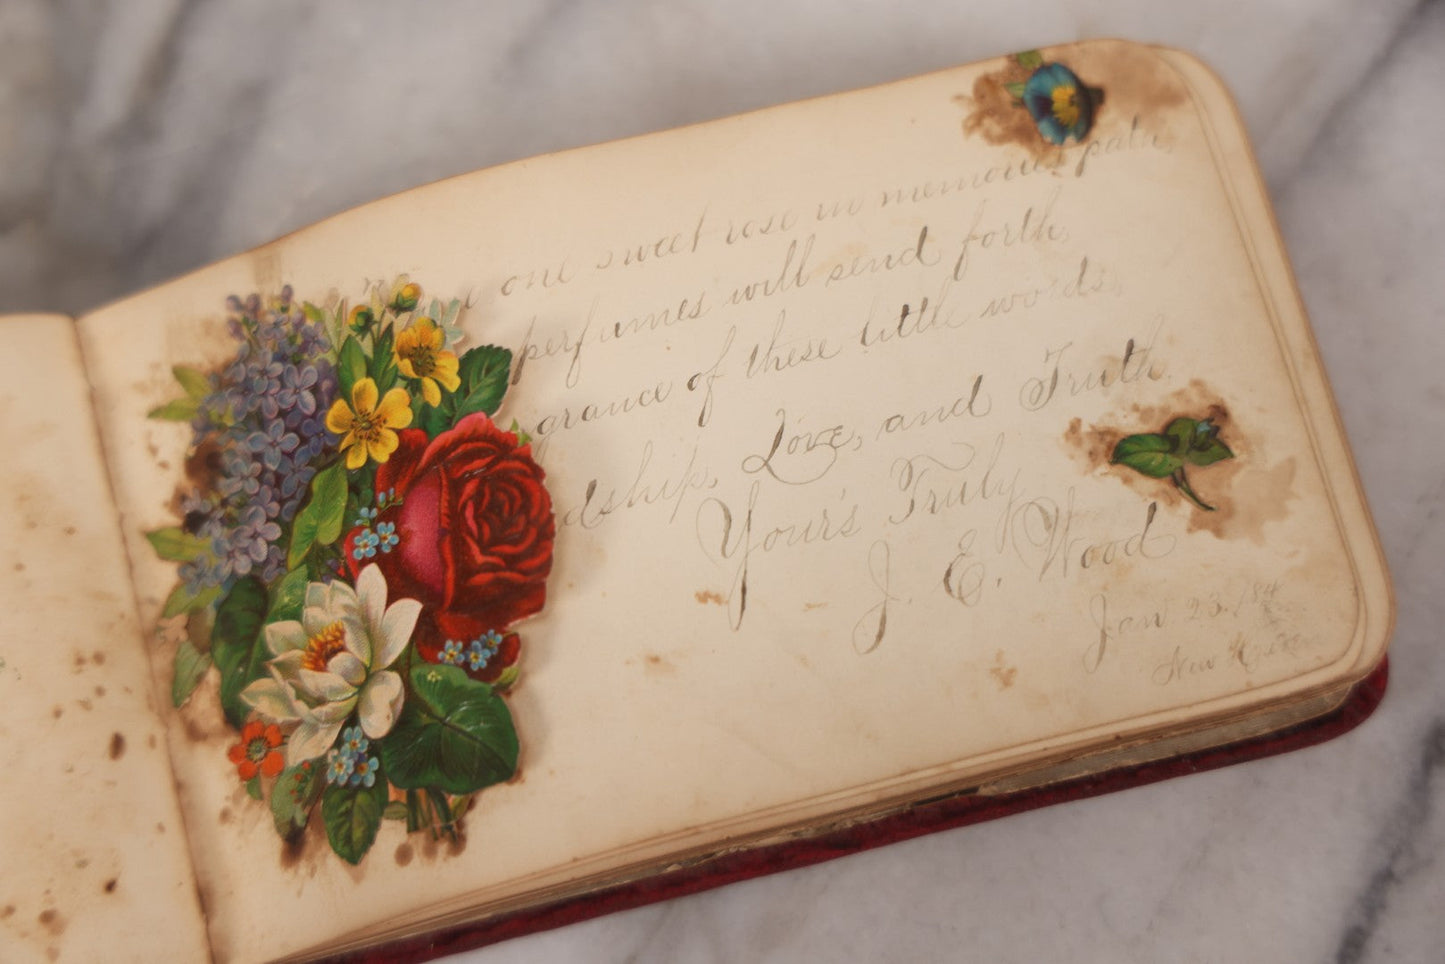 one sweet rose in memories path,
perfumes will send forth,
grance of these little words,
dship, Love, and Truth
Your's Truly
J. E. Wood
Jan 23. 184
New